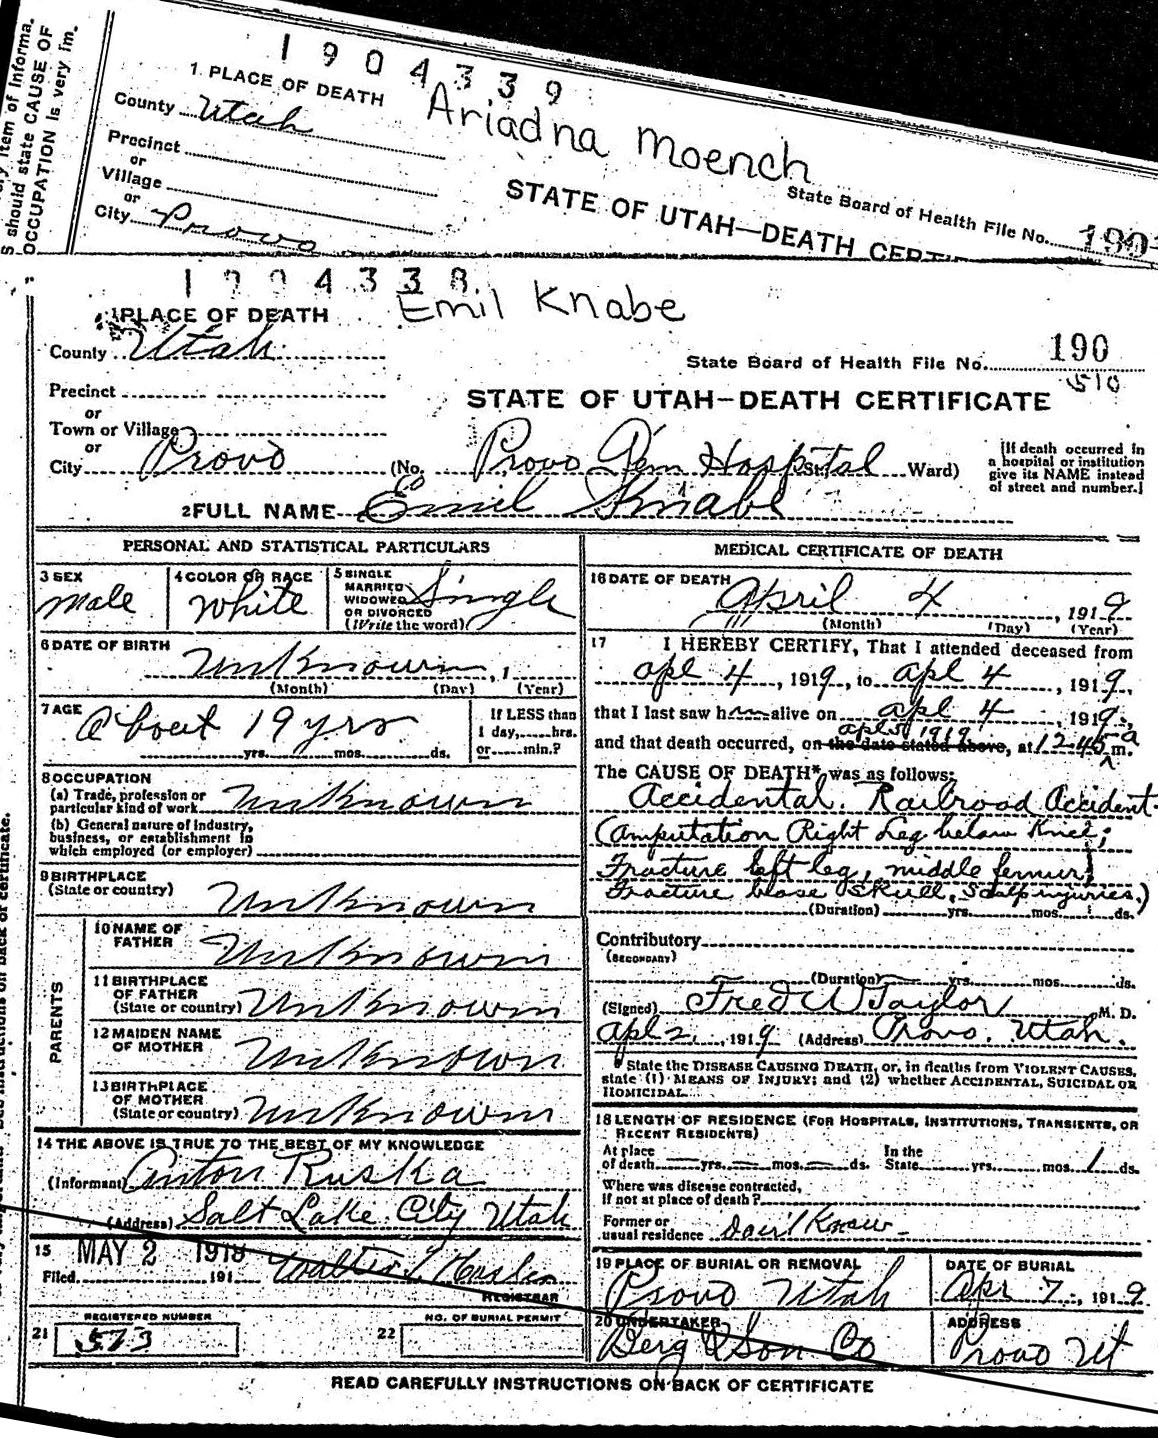 ry item of Informa.
s should state CAUSE OF
OCCUPATION is very im.
1904339
1 PLACE OF DEATH
Ariadna Moench
County Utah
Precinct
or
Village
or
City Provo
State Board of Health File No. 190
STATE OF UTAH—DEATH CERTI
1904338
Emil Knabe
1 PLACE OF DEATH
County Utah
State Board of Health File No. 190
510
Precinct
or
Town or Village
or
City Provo (No. Provo Gen Hospital St. Ward)
STATE OF UTAH—DEATH CERTIFICATE
[If death occurred in
a hospital or institution
give its NAME instead
of street and number.]
2 FULL NAME Emil Knabe
PERSONAL AND STATISTICAL PARTICULARS
3 SEX
Male
4 COLOR OR RACE
White
5 SINGLE
MARRIED
WIDOWED
OR DIVORCED
(Write the word)
Single
6 DATE OF BIRTH
Unknown, 1
(Month) (Day) (Year)
7 AGE
About 19 yrs
yrs. mos. ds.
If LESS than
1 day, hrs.
or min.?
8 OCCUPATION
(a) Trade, profession or
particular kind of work Unknown
(b) General nature of industry,
business, or establishment in
which employed (or employer)
9 BIRTHPLACE
(State or country) Unknown
PARENTS
10 NAME OF
FATHER Unknown
11 BIRTHPLACE
OF FATHER
(State or country) Unknown
12 MAIDEN NAME
OF MOTHER Unknown
13 BIRTHPLACE
OF MOTHER
(State or country) Unknown
14 THE ABOVE IS TRUE TO THE BEST OF MY KNOWLEDGE
(Informant) Anton Ruska
(Address) Salt Lake City Utah
15
Filed MAY 2 1918 191
REGISTRAR
REGISTERED NUMBER
21 573
NO. OF BURIAL PERMIT
22
MEDICAL CERTIFICATE OF DEATH
16 DATE OF DEATH
April 4, 1919
(Month) (Day) (Year)
17 I HEREBY CERTIFY, That I attended deceased from
apl 4, 1919, to apl 4, 1919,
that I last saw him alive on apl 4, 1919,
apl 5 1919
and that death occurred, on the date stated above, at 12-45 a m.
The CAUSE OF DEATH* was as follows:
Accidental. Railroad Accident-
(Amputation Right Leg below Knee;
Fracture left leg, middle femur;
Fracture base Skull, Scalp injuries.)
(Duration) yrs. mos. ds.
Contributory
(SECONDARY)
(Duration) yrs. mos. ds.
(Signed) Fred W Taylor M. D.
apl 2, 1919 (Address) Provo, Utah.
* State the DISEASE CAUSING DEATH, or, in deaths from VIOLENT CAUSES,
state (1) MEANS OF INJURY; and (2) whether ACCIDENTAL, SUICIDAL OR
HOMICIDAL.
18 LENGTH OF RESIDENCE (FOR HOSPITALS, INSTITUTIONS, TRANSIENTS, OR
RECENT RESIDENTS)
At place
of death yrs. mos. ds.
In the
State yrs. mos. 1 ds.
Where was disease contracted,
If not at place of death?
Former or
usual residence Don't Know
19 PLACE OF BURIAL OR REMOVAL
Provo Utah
DATE OF BURIAL
Apr 7, 1919
20 UNDERTAKER
Berg & Son Co
ADDRESS
Provo Ut
READ CAREFULLY INSTRUCTIONS ON BACK OF CERTIFICATE